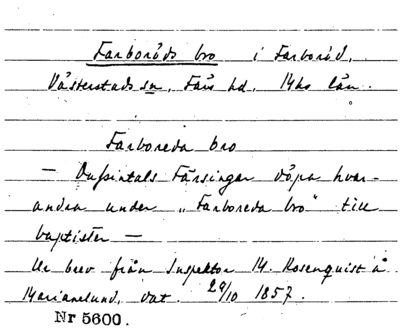 Farboröds bro i Farboröd,
Västerstads sn. Färs hd. M-hs län.
Farboreda bro
— Dussintals Färsingar döpa hvar-
andra under "Farboreda bro" till
baptister —
Ur brev från Inspektor M. Rosenquist å
Marianelund, dat. 29/10 1857.
Nr 5600.